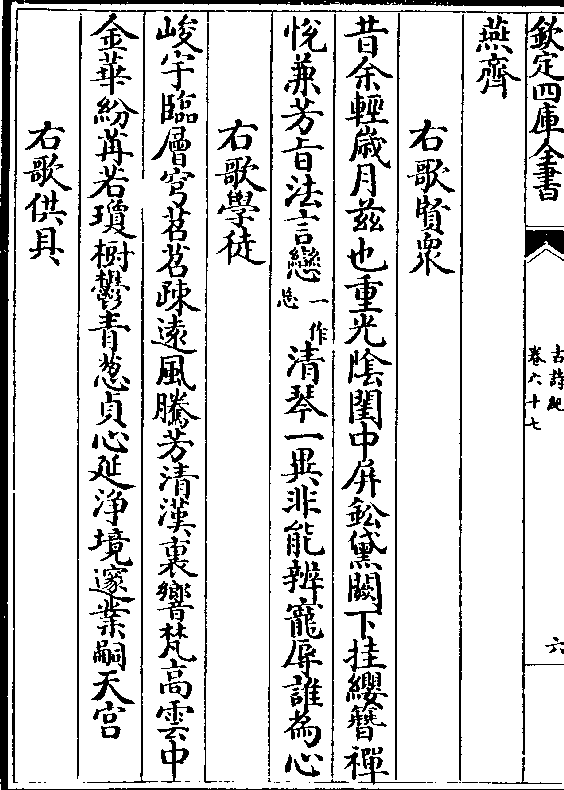 欽定四庫全書
古詩紀
卷六十七
六
燕齊
右歌賢衆
昔余輕歲月兹也重光陰閨中屏鈆黛闕下挂纓簪禪
悅兼芳旨法言戀一作忽清琴一異非能辨寵辱誰為心
右歌學徒
峻宇臨層穹苕苕疎遠風騰芳清漢裏響梵高雲中
金華紛苒若瓊樹鬱青葱貞心延浄境邃業嗣天宫
右歌供具